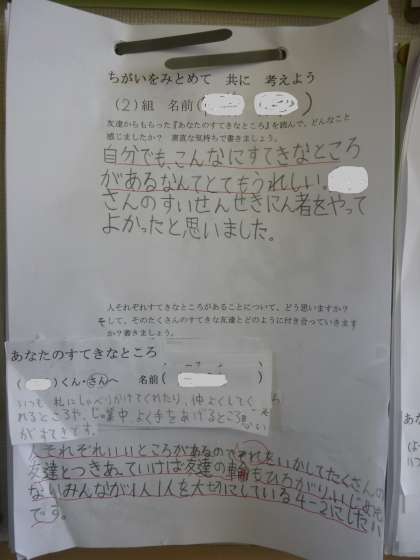 ちがいをみとめて 共に 考えよう
(2)組 名前( )
友達からもらった『あなたのすてきなところ』を読んで、どんなこと
感じましたか? 素直な気持ちで書きましょう。
自分でも、こんなにすてきなところ
があるなんてとてもうれしい。
さんのすいせんせきにん者をやって
よかったと思いました。
人それぞれすてきなところがあることについて、どう思いますか?
そして、そのたくさんのすてきな友達とどのように付き合っていきます
か?書きましょう。
あなたのすてきなところ
( )くん・さんへ 名前( )
いつも私にしゃべりかけてくれたり、仲よくしてく
れるところや、じゅ業中よく手をあげるところ
がすてきです。
人それぞれいいところがあるのでそれをいかしてたくさんの
友達とつきあっていけば友達の輪もひろがりいじめも
ないみんなが1人1人を大切にしている4-2にしたい
です。